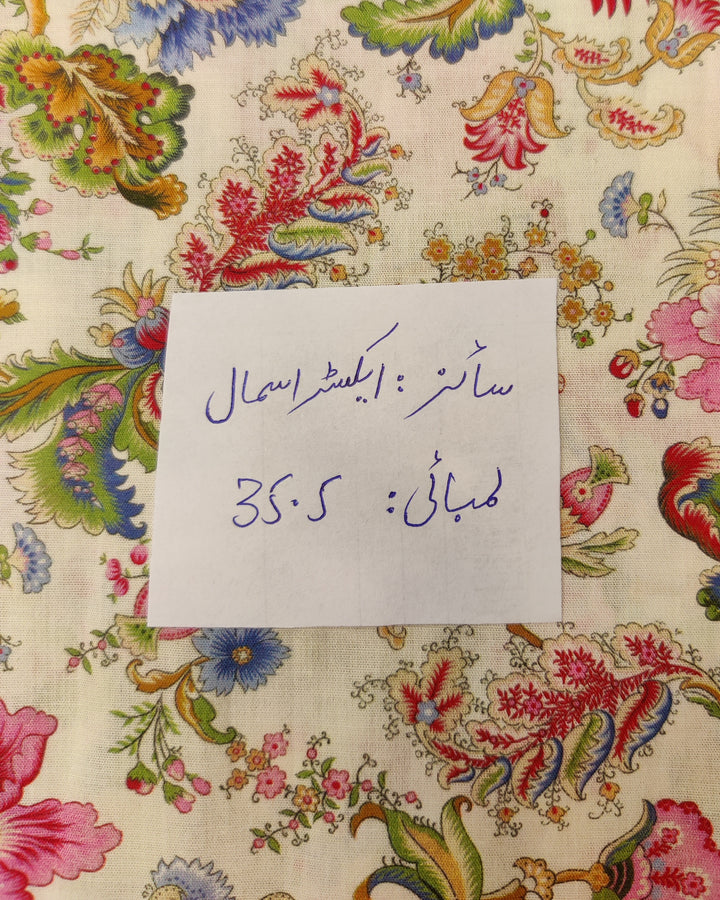 سائز : ایکسٹرا سمال
لمبائی : 35.5